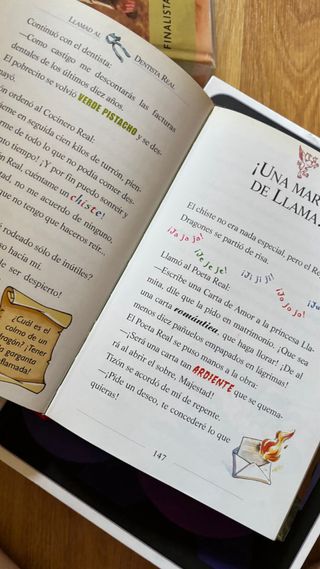 FINALISTA
LLAMAD AL
DENTISTA REAL
Continuó con el dentista:
—Como castigo me descontarás las facturas
dentales de los últimos diez años.
El pobrecito se volvió VERDE PISTACHO y se des-
mayó.
ón ordenó al Cocinero Real.
ieme en seguida cien kilos de turrón, pien-
arme de todo lo que no podía comer des-
nto tiempo! ¡Y por fin puedo sonreír y
ón Real, cuéntame un chiste!
tad, no me acuerdo de ninguno,
que no tengo que haceros reír...
rodeado sólo de inútiles?
so hacia mí:
de ser despierto!
¿Cuál es el
colmo de un
dragón? ¡Tener
la garganta
inflamada!
¡UNA MAR
DE LLAMA
El chiste no era nada especial, pero el Re
Dragones se partió de risa.
¡Ja ja ja!
¡Je je je!
¡Ji ji ji!
¡Jo jo jo!
¡Ju
Llamó al Poeta Real:
—Escribe una Carta de Amor a la princesa Lla-
mita, dile que la pido en matrimonio. ¡Que sea
una carta romántica, que haga llorar! ¡De al
menos diez pañuelos empapados en lágrimas!
El Poeta Real se puso manos a la obra:
—¡Será una carta tan ARDIENTE que se quema-
rá al abrir el sobre, Majestad!
Tizón se acordó de mí de repente.
—¡Pide un deseo, te concederé lo que
quieras!
147